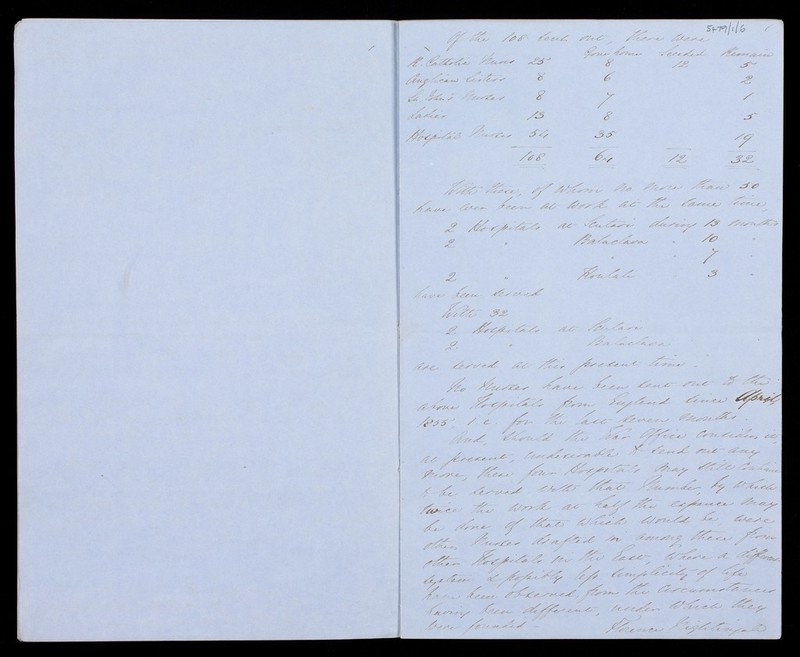 5479/1/6
Of the 108 sent out, there were
Gone home Seceded Remain
R. Catholic Nuns 25 8 12 5
Anglican Sisters 8 6 2
St. John's Nurses 8 7 1
Ladies 13 8 5
Hospital Nurses 54 35 19
108 64 12 32
With these, of whom no more than 50
have ever been at work at the same time,
2 Hospitals at Scutari during 13 months
2 " Balaclava " 10 "
" " 7 "
2 " Koulali " 3 "
have been served
With 32
2 Hospitals at Scutari
2 " Balaclava
are served at this present time.
No Nurses have been sent out to the
above Hospitals from England since April
1855. i.e. for the last seven months
And, should the War Office consider it,
at present, undesirable to send out any
more, these four Hospitals may still continue
to be served with that Number, by which
twice the work at half the expence may
be done of that which would be, were
other Nurses drafted in among these from
other Hospitals in the East, where a different
system & possibly less simplicity of life
have been observed, from the circumstances
having been different, under which they
were founded -
Florence Nightingale